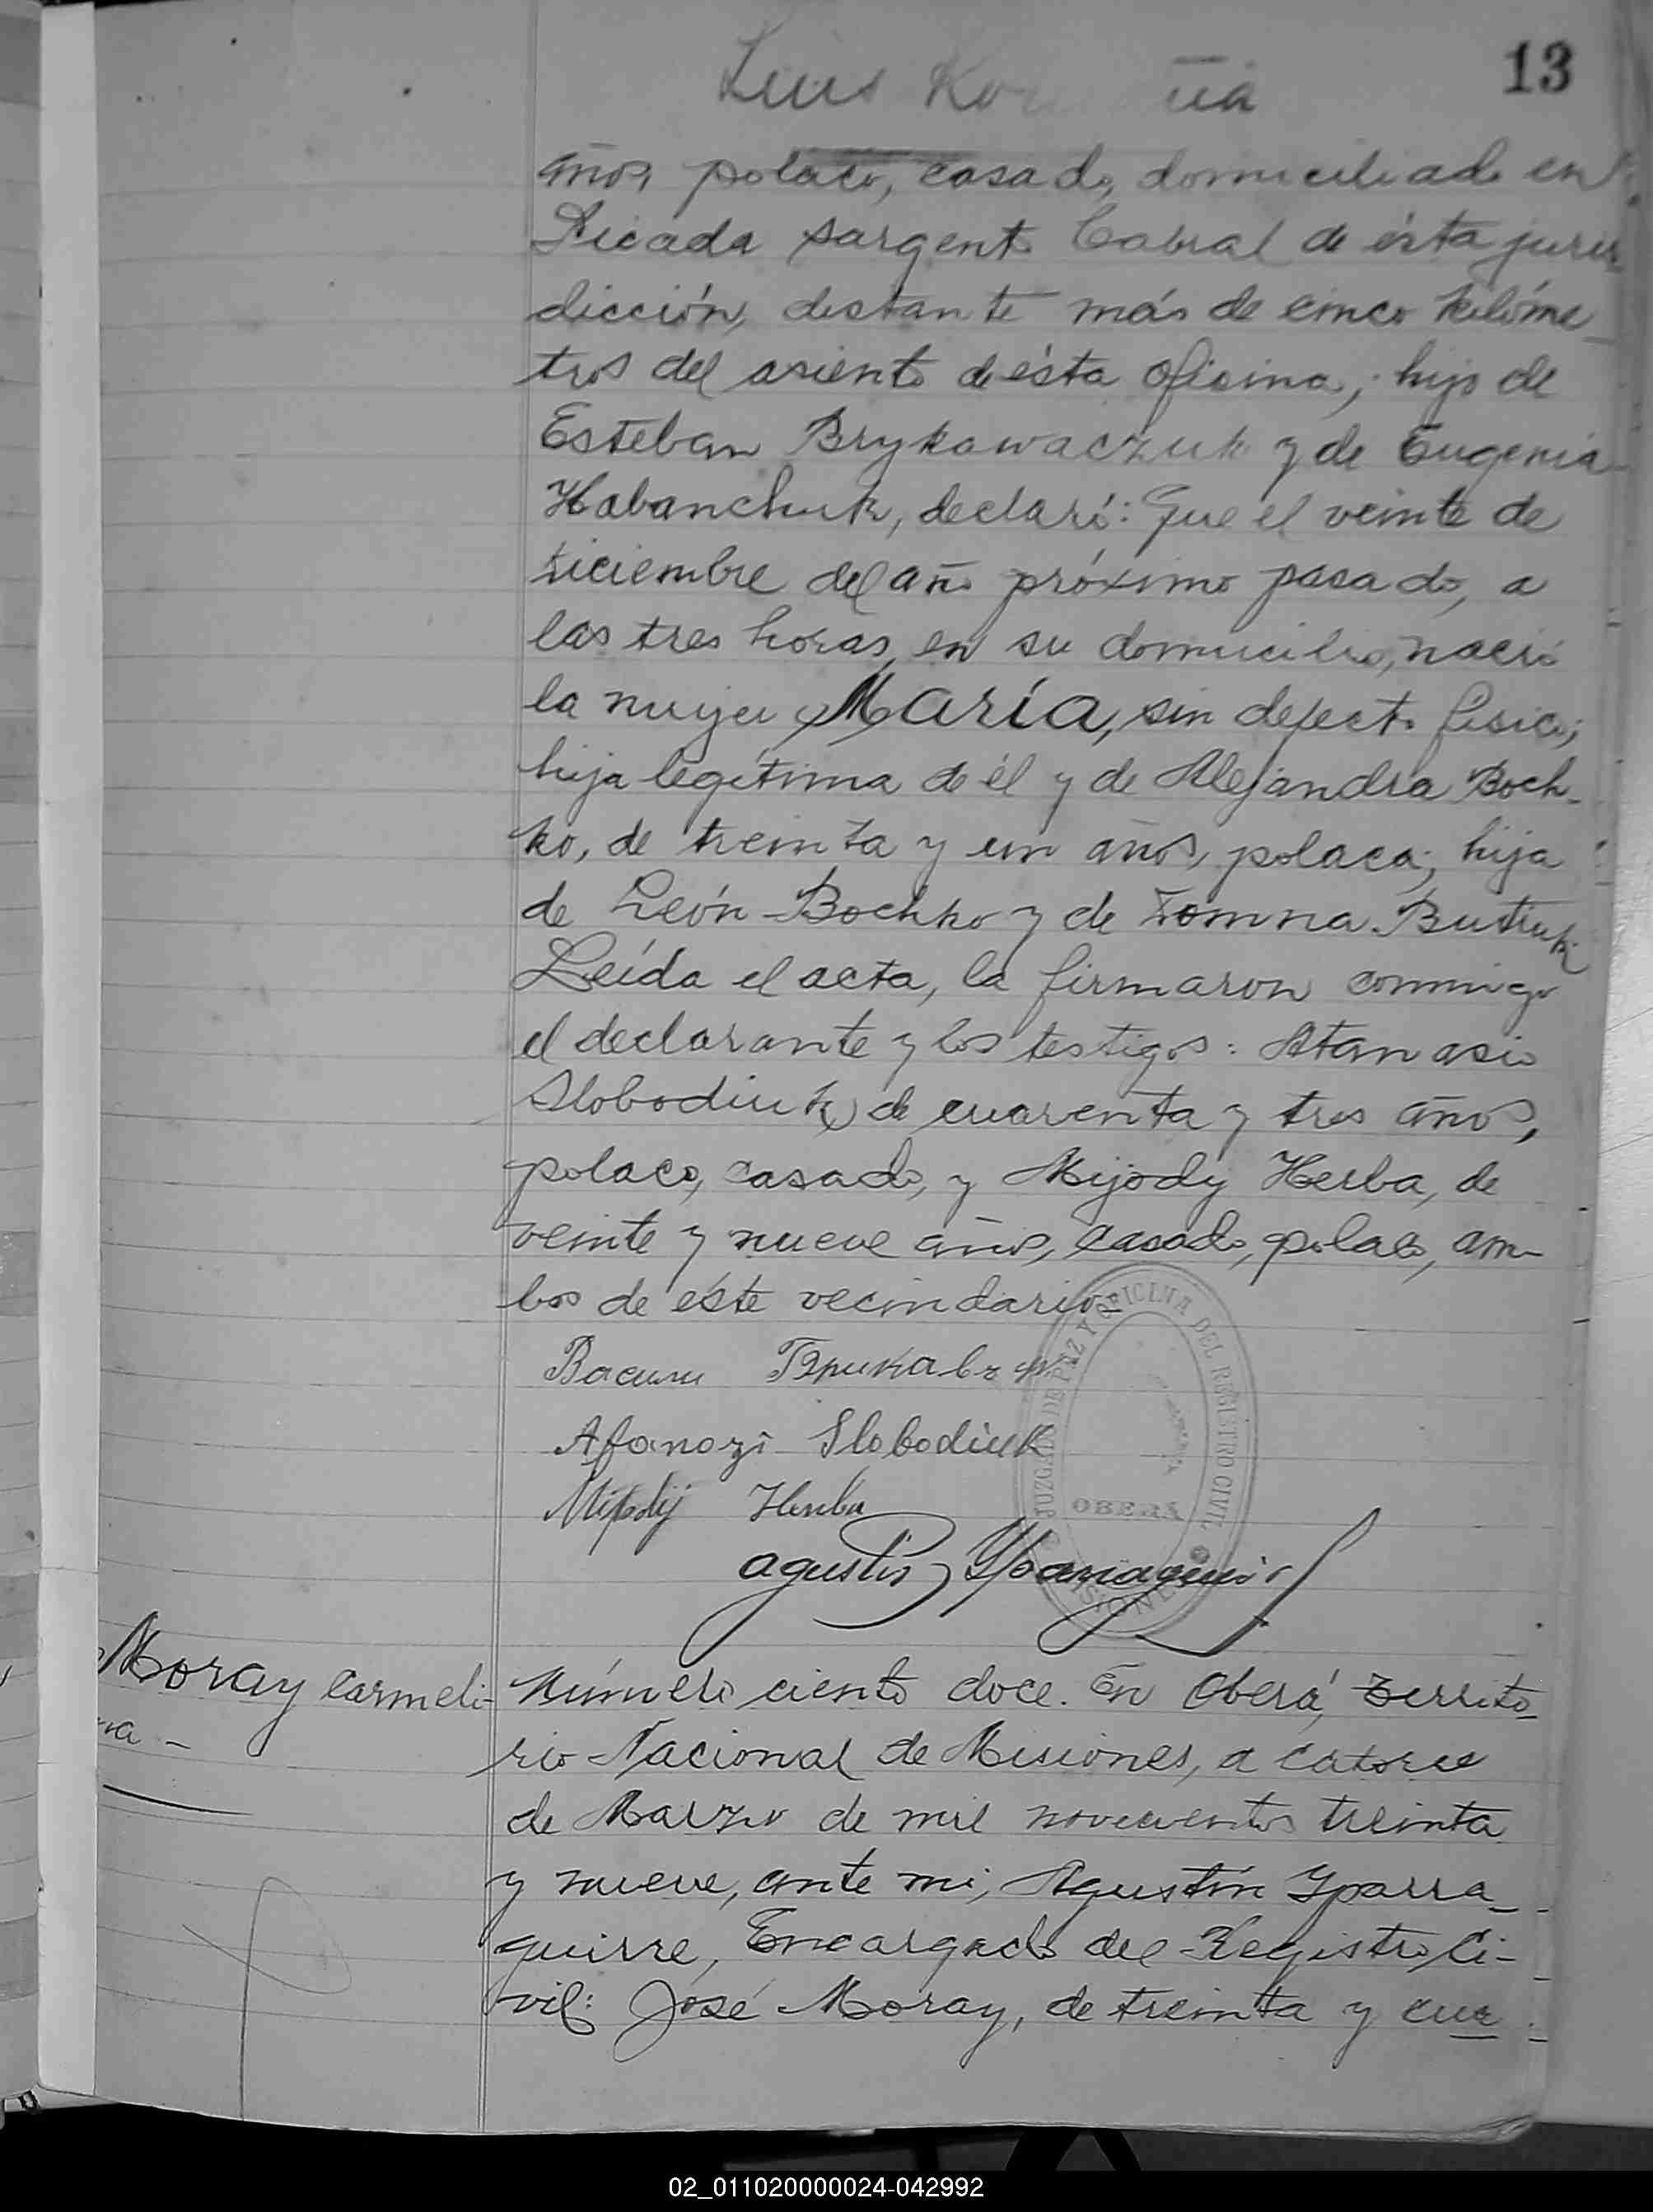 13
Luis
años, polaco, casado, domiciliado en
Picada sargento Cabral de ésta juris-
dicción, distante más de cinco kilóme-
tros del asiento de ésta oficina; hijo de
Esteban Brykawaczuk y de Eugenia
Habanchuk, declaró: Que el veinte de
diciembre del año próximo pasado, a
las tres horas, en su domicilio, nació
la mujer María, sin defecto físico;
hija legítima de él y de Alejandra Boch-
ko, de treinta y un años, polaca; hija
de León Bochko y de Fomna Butruk
Leída el acta, la firmaron conmigo
el declarante y los testigos: Atanasio
Slobodiuk, de cuarenta y tres años,
polaco, casado, y Mijody Herba, de
veinte y nueve años, casado, polaco, am-
bos de éste vecindario-
Васили
Afanozi Slobodiuk
Herba
Agustín Yparraguirre
JUZGADO DE PAZ Y OFICINA DEL REGISTRO CIVIL
OBERÁ
MISIONES
Moray Carmeli-
na -
Número ciento doce. En Oberá, Territo-
rio Nacional de Misiones, a catorce
de Marzo de mil novecientos treinta
y nueve, ante mi, Agustín Yparra-
guirre, Encargado del Registro Ci-
vil: José Moray, de treinta y cua-
02_011020000024-042992